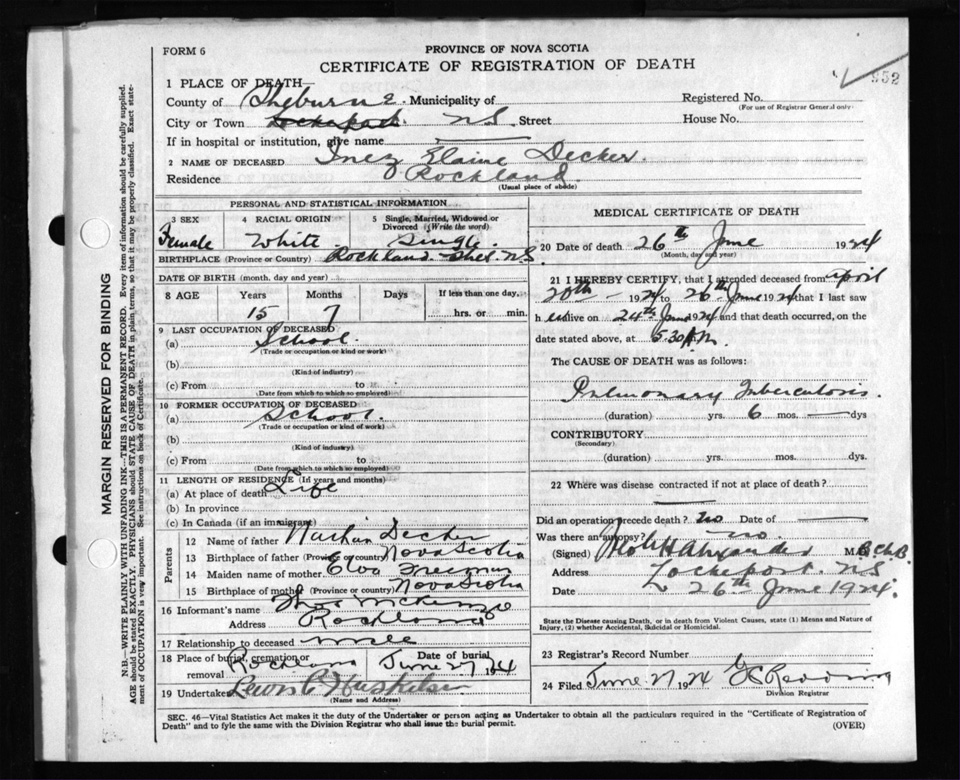 FORM 6
PROVINCE OF NOVA SCOTIA
CERTIFICATE OF REGISTRATION OF DEATH
352
1 PLACE OF DEATH—
County of Shelburne. Municipality of
Registered No.
(For use of Registrar General only)
City or Town Lockeport N.S. Street
House No.
If in hospital or institution, give name
2 NAME OF DECEASED Inez Elaine Decker.
Residence Rockland.
(Usual place of abode)
PERSONAL AND STATISTICAL INFORMATION
3 SEX 4 RACIAL ORIGIN 5 Single, Married, Widowed or Divorced (Write the word)
Female White. Single.
BIRTHPLACE (Province or Country) Rockland. Shel. N.S.
DATE OF BIRTH (month, day and year)
8 AGE Years Months Days If less than one day,
15 7 hrs. or min.
9 LAST OCCUPATION OF DECEASED
(a) School.
(Trade or occupation or kind or work)
(b)
(Kind of industry)
(c) From to
(Date from which to which so employed)
10 FORMER OCCUPATION OF DECEASED
(a) School.
(Trade or occupation or kind of work)
(b)
(Kind of industry)
(c) From to
(Date from which to which so employed)
11 LENGTH OF RESIDENCE (Id years and months)
(a) At place of death Life
(b) In province
(c) In Canada (if an immigrant)
Parents
12 Name of father Nathan Decker
13 Birthplace of father (Province or country) Nova Scotia
14 Maiden name of mother Elva Freeman
15 Birthplace of mother (Province or country) Nova Scotia
16 Informant's name Thos McKenzie
Address Rockland
17 Relationship to deceased
18 Place of burial, cremation or removal Rockland
Date of burial June 27 1924
19 Undertaker Lewis
(Name and Address)
MEDICAL CERTIFICATE OF DEATH
20 Date of death 26th June 1924
(Month, day and year)
21 I HEREBY CERTIFY, that I attended deceased from April
20th 1924 to 26th June 1924 that I last saw
h er alive on 24th June 1924 and that death occurred, on the
date stated above, at 5.30 A.M.
The CAUSE OF DEATH was as follows:
Pulmonary Tuberculosis.
(duration) yrs. 6 mos. — dys
CONTRIBUTORY
(Secondary)
(duration) yrs. mos. dys.
22 Where was disease contracted if not at place of death?
—
Did an operation precede death? no Date of —
Was there an autopsy? no.
(Signed) M.B. Ch.B.
Address Lockeport. N.S.
Date 26th June 1924.
State the Disease causing Death, or in death from Violent Causes, state (1) Means and Nature of
Injury, (2) whether Accidental, Suicidal or Homicidal.
23 Registrar's Record Number
24 Filed June 27 1924
Division Registrar
SEC. 46—Vital Statistics Act makes it the duty of the Undertaker or person acting as Undertaker to obtain all the particulars required in the "Certificate of Registration of
Death" and to fyle the same with the Division Registrar who shall issue the burial permit.
(OVER)
MARGIN RESERVED FOR BINDING
N.B.—WRITE PLAINLY WITH UNFADING INK—THIS IS A PERMANENT RECORD. Every item of information should be carefully supplied.
AGE should be stated EXACTLY. PHYSICIANS should STATE CAUSE OF DEATH in plain terms, so that it may be properly classified. Exact state-
ment of OCCUPATION is very important. See instructions on back of Certificate.